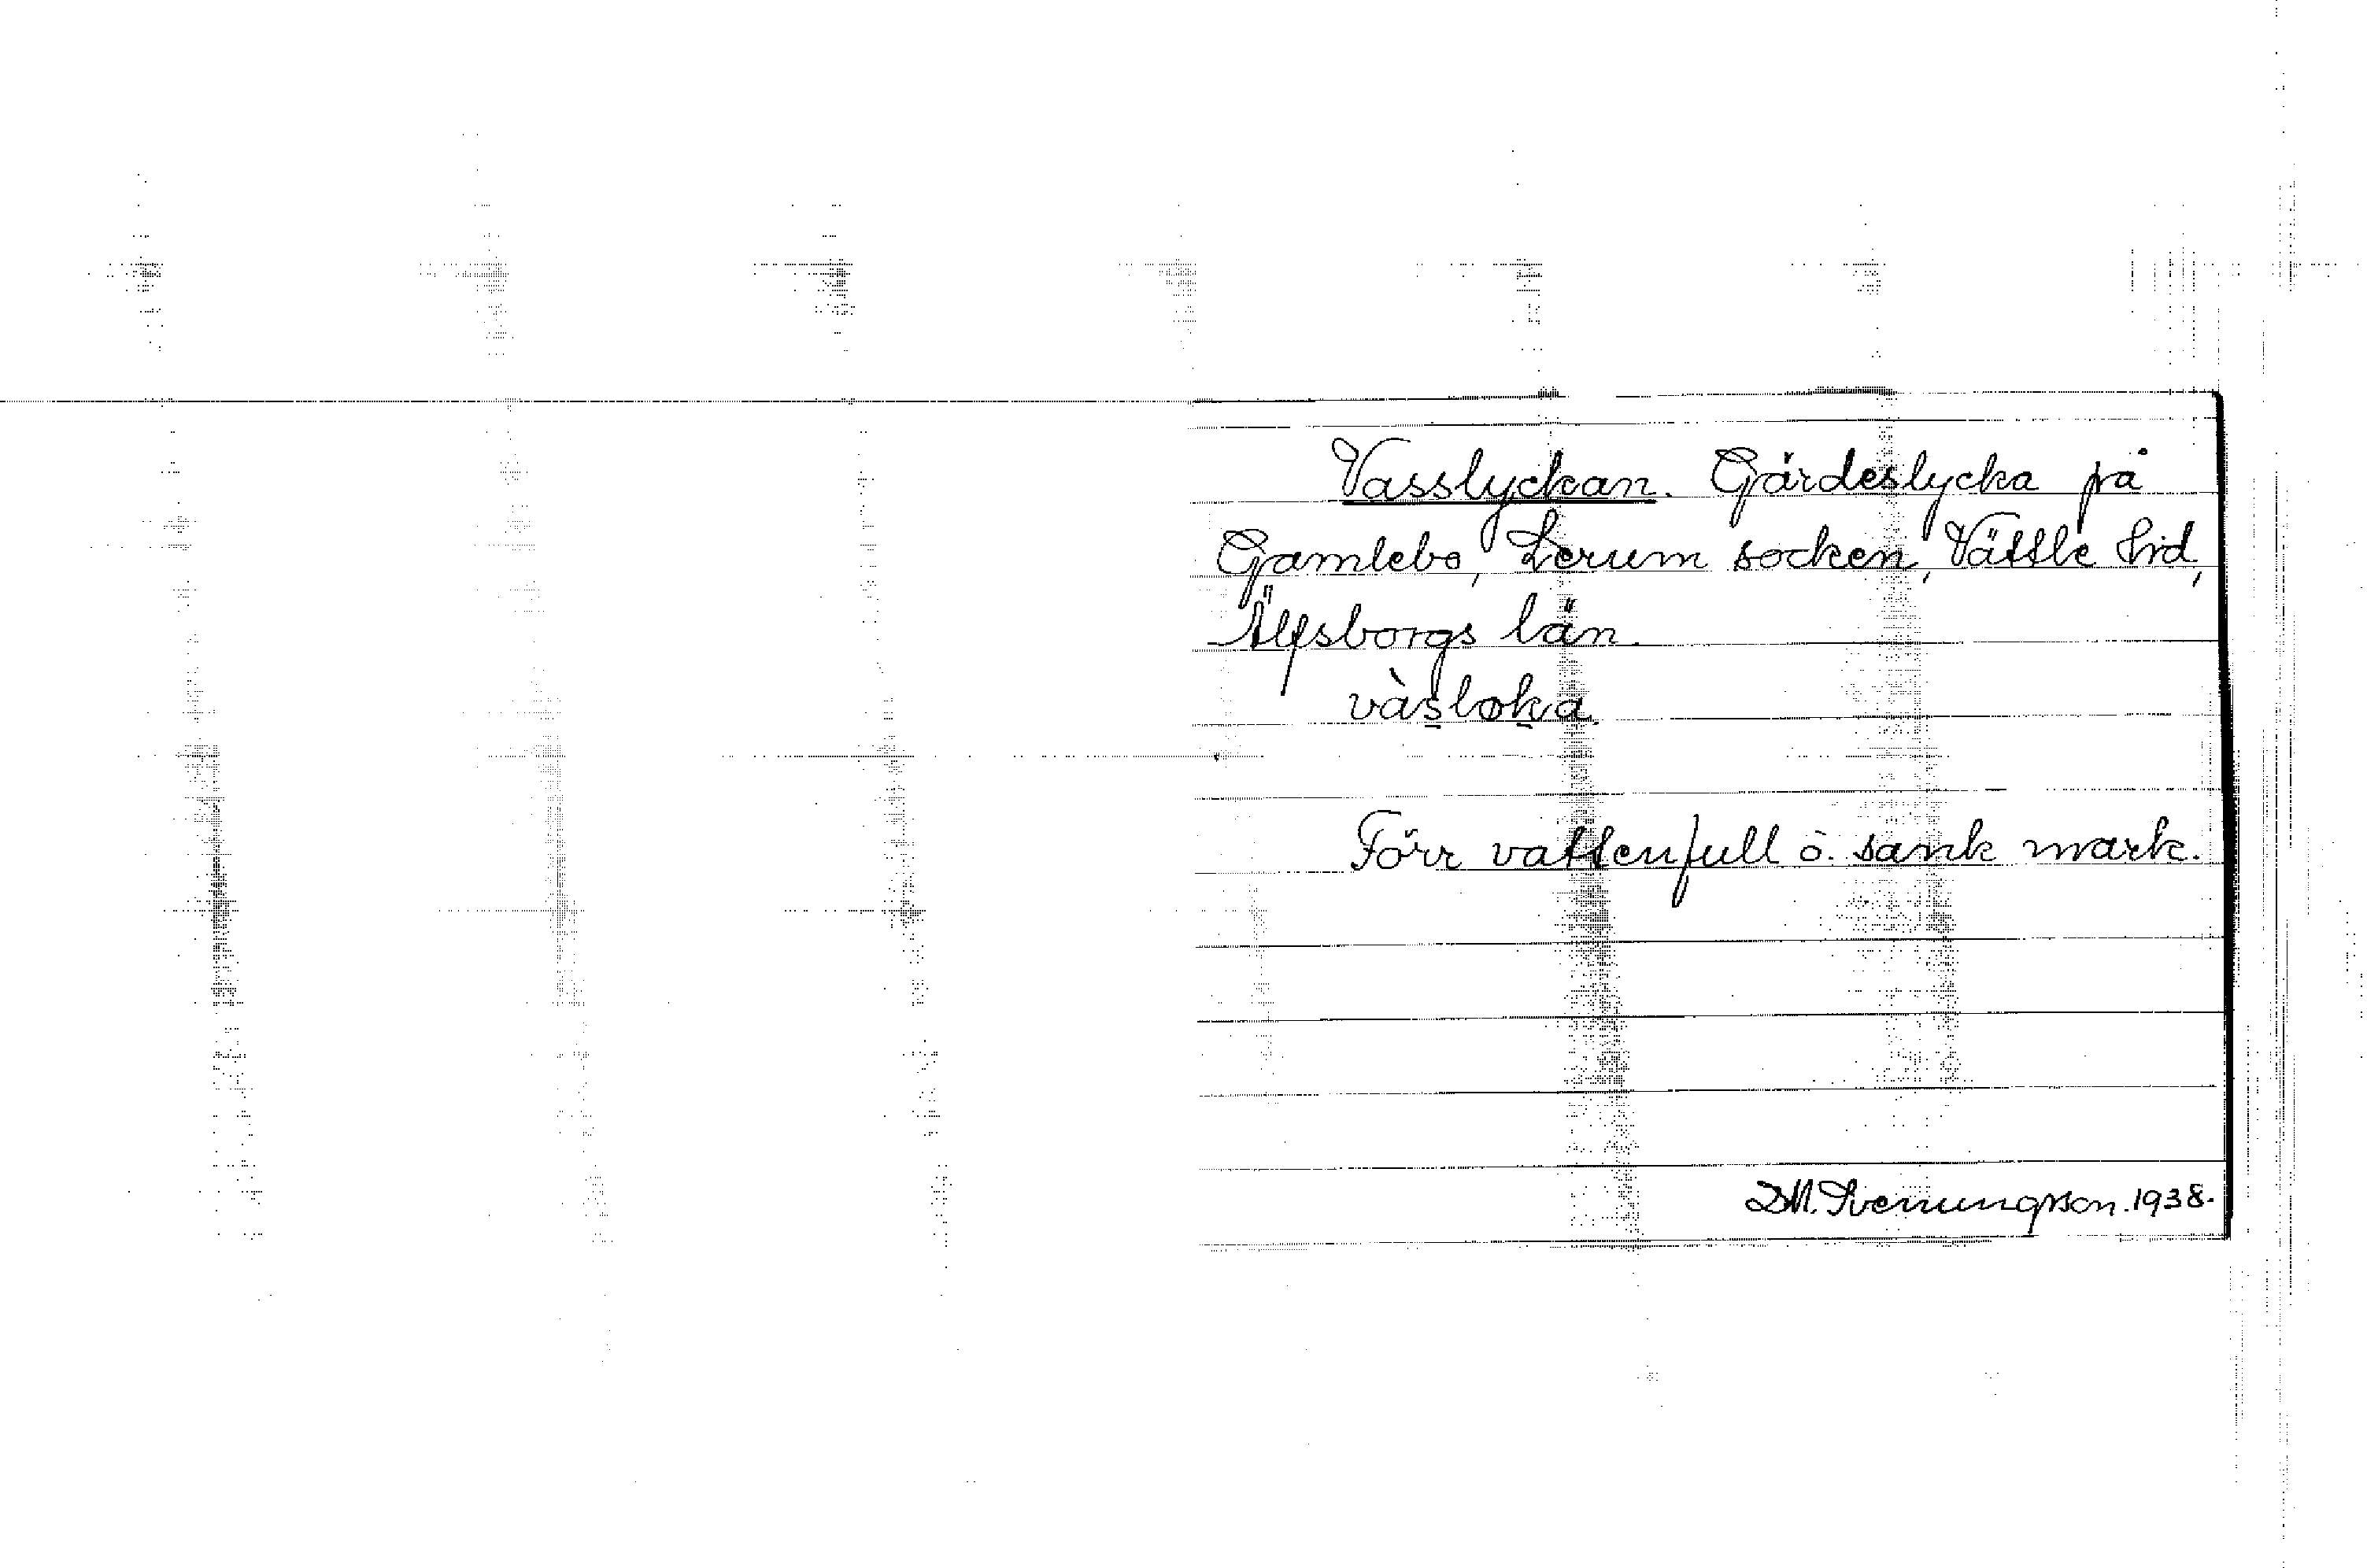 Vasslyckan. Gärdeslycka på
Gamlebo, Lerum socken, Vättle hd,
Älfsborgs län.
vàsloka.
Förr vattenfull o. sank mark.
D.M. Svenungsson. 1938.